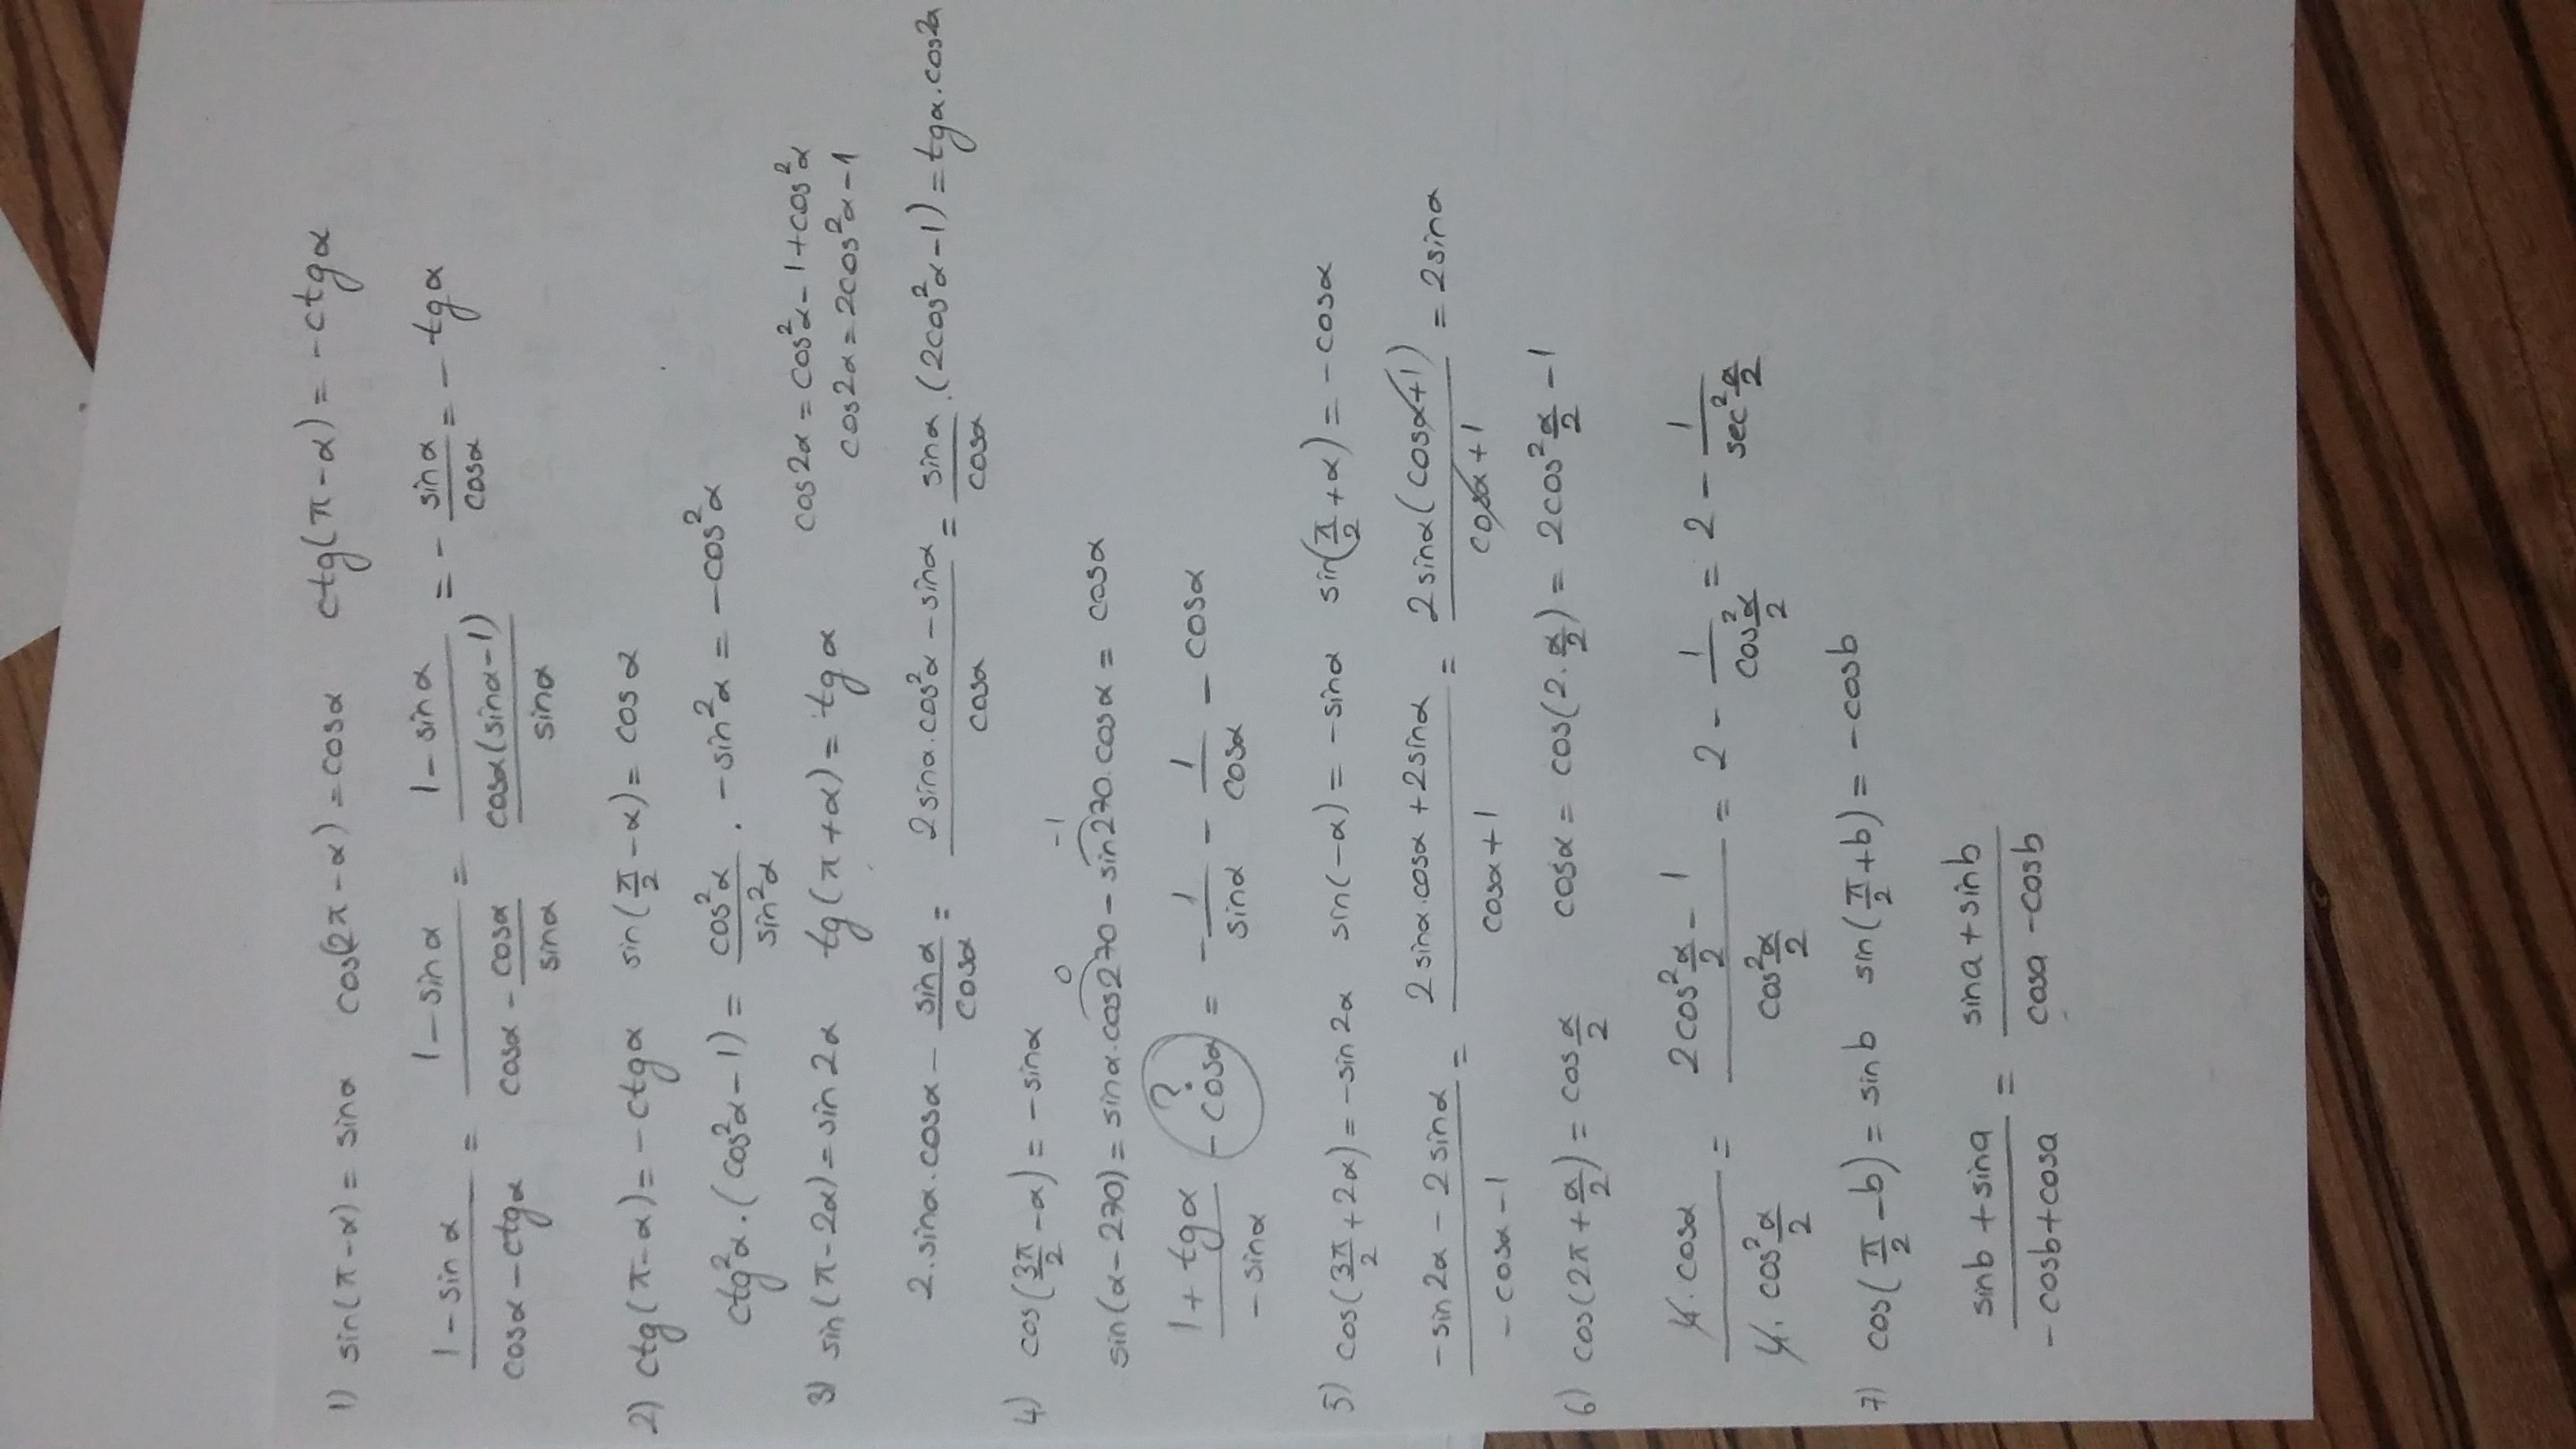 1) sin(π-α) = sinα cos(2π-α) = cosα ctg(π-α) = -ctgα
(1-sinα)/(cosα-ctgα) = (1-sinα)/(cosα - cosα/sinα) = (1-sinα)/(cosα(sinα-1)/sinα) = - sinα/cosα = - tgα
2) ctg(π-α) = -ctgα sin(π/2-α) = cosα
ctg²α·(cos²α-1) = cos²α/sin²α · -sin²α = -cos²α
3) sin(π-2α) = sin2α tg(π+α) = tgα cos2α = cos²α-1+cos²α
cos2α = 2cos²α-1
2·sinα·cosα - sinα/cosα = (2sinα·cos²α - sinα)/cosα = sinα/cosα·(2cos²α-1) = tgα·cos2α
4) cos(3π/2-α) = -sinα
0 -1
sin(α-270) = sinα·cos270 - sin270·cosα = cosα
?
(1+tgα)/(-sinα) - cosα = - 1/sinα - 1/cosα - cosα
5) cos(3π/2+2α) = -sin2α sin(-α) = -sinα sin(π/2+α) = -cosα
(-sin2α - 2sinα)/(-cosα-1) = (2sinα·cosα+2sinα)/(cosα+1) = 2sinα(cosα+1)/(cosα+1) = 2sinα
6) cos(2π+α/2) = cos α/2 cosα = cos(2·α/2) = 2cos² α/2 - 1
4·cosα/(4·cos² α/2) = (2cos² α/2 - 1)/(cos² α/2) = 2 - 1/(cos² α/2) = 2 - 1/(sec² α/2)
7) cos(π/2-b) = sinb sin(π/2+b) = -cosb
(sinb+sina)/(-cosb+cosa) = (sina+sinb)/(cosa-cosb)